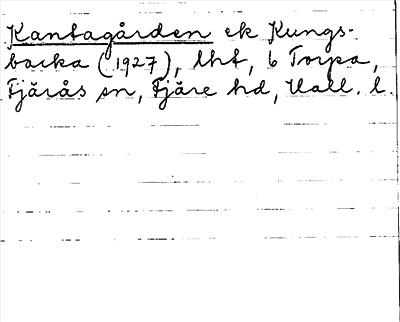 Kantagården ek Kungs-
backa (1927), lht, 6 Torpa,
Fjärås sn, Fjäre hd, Hall. l.